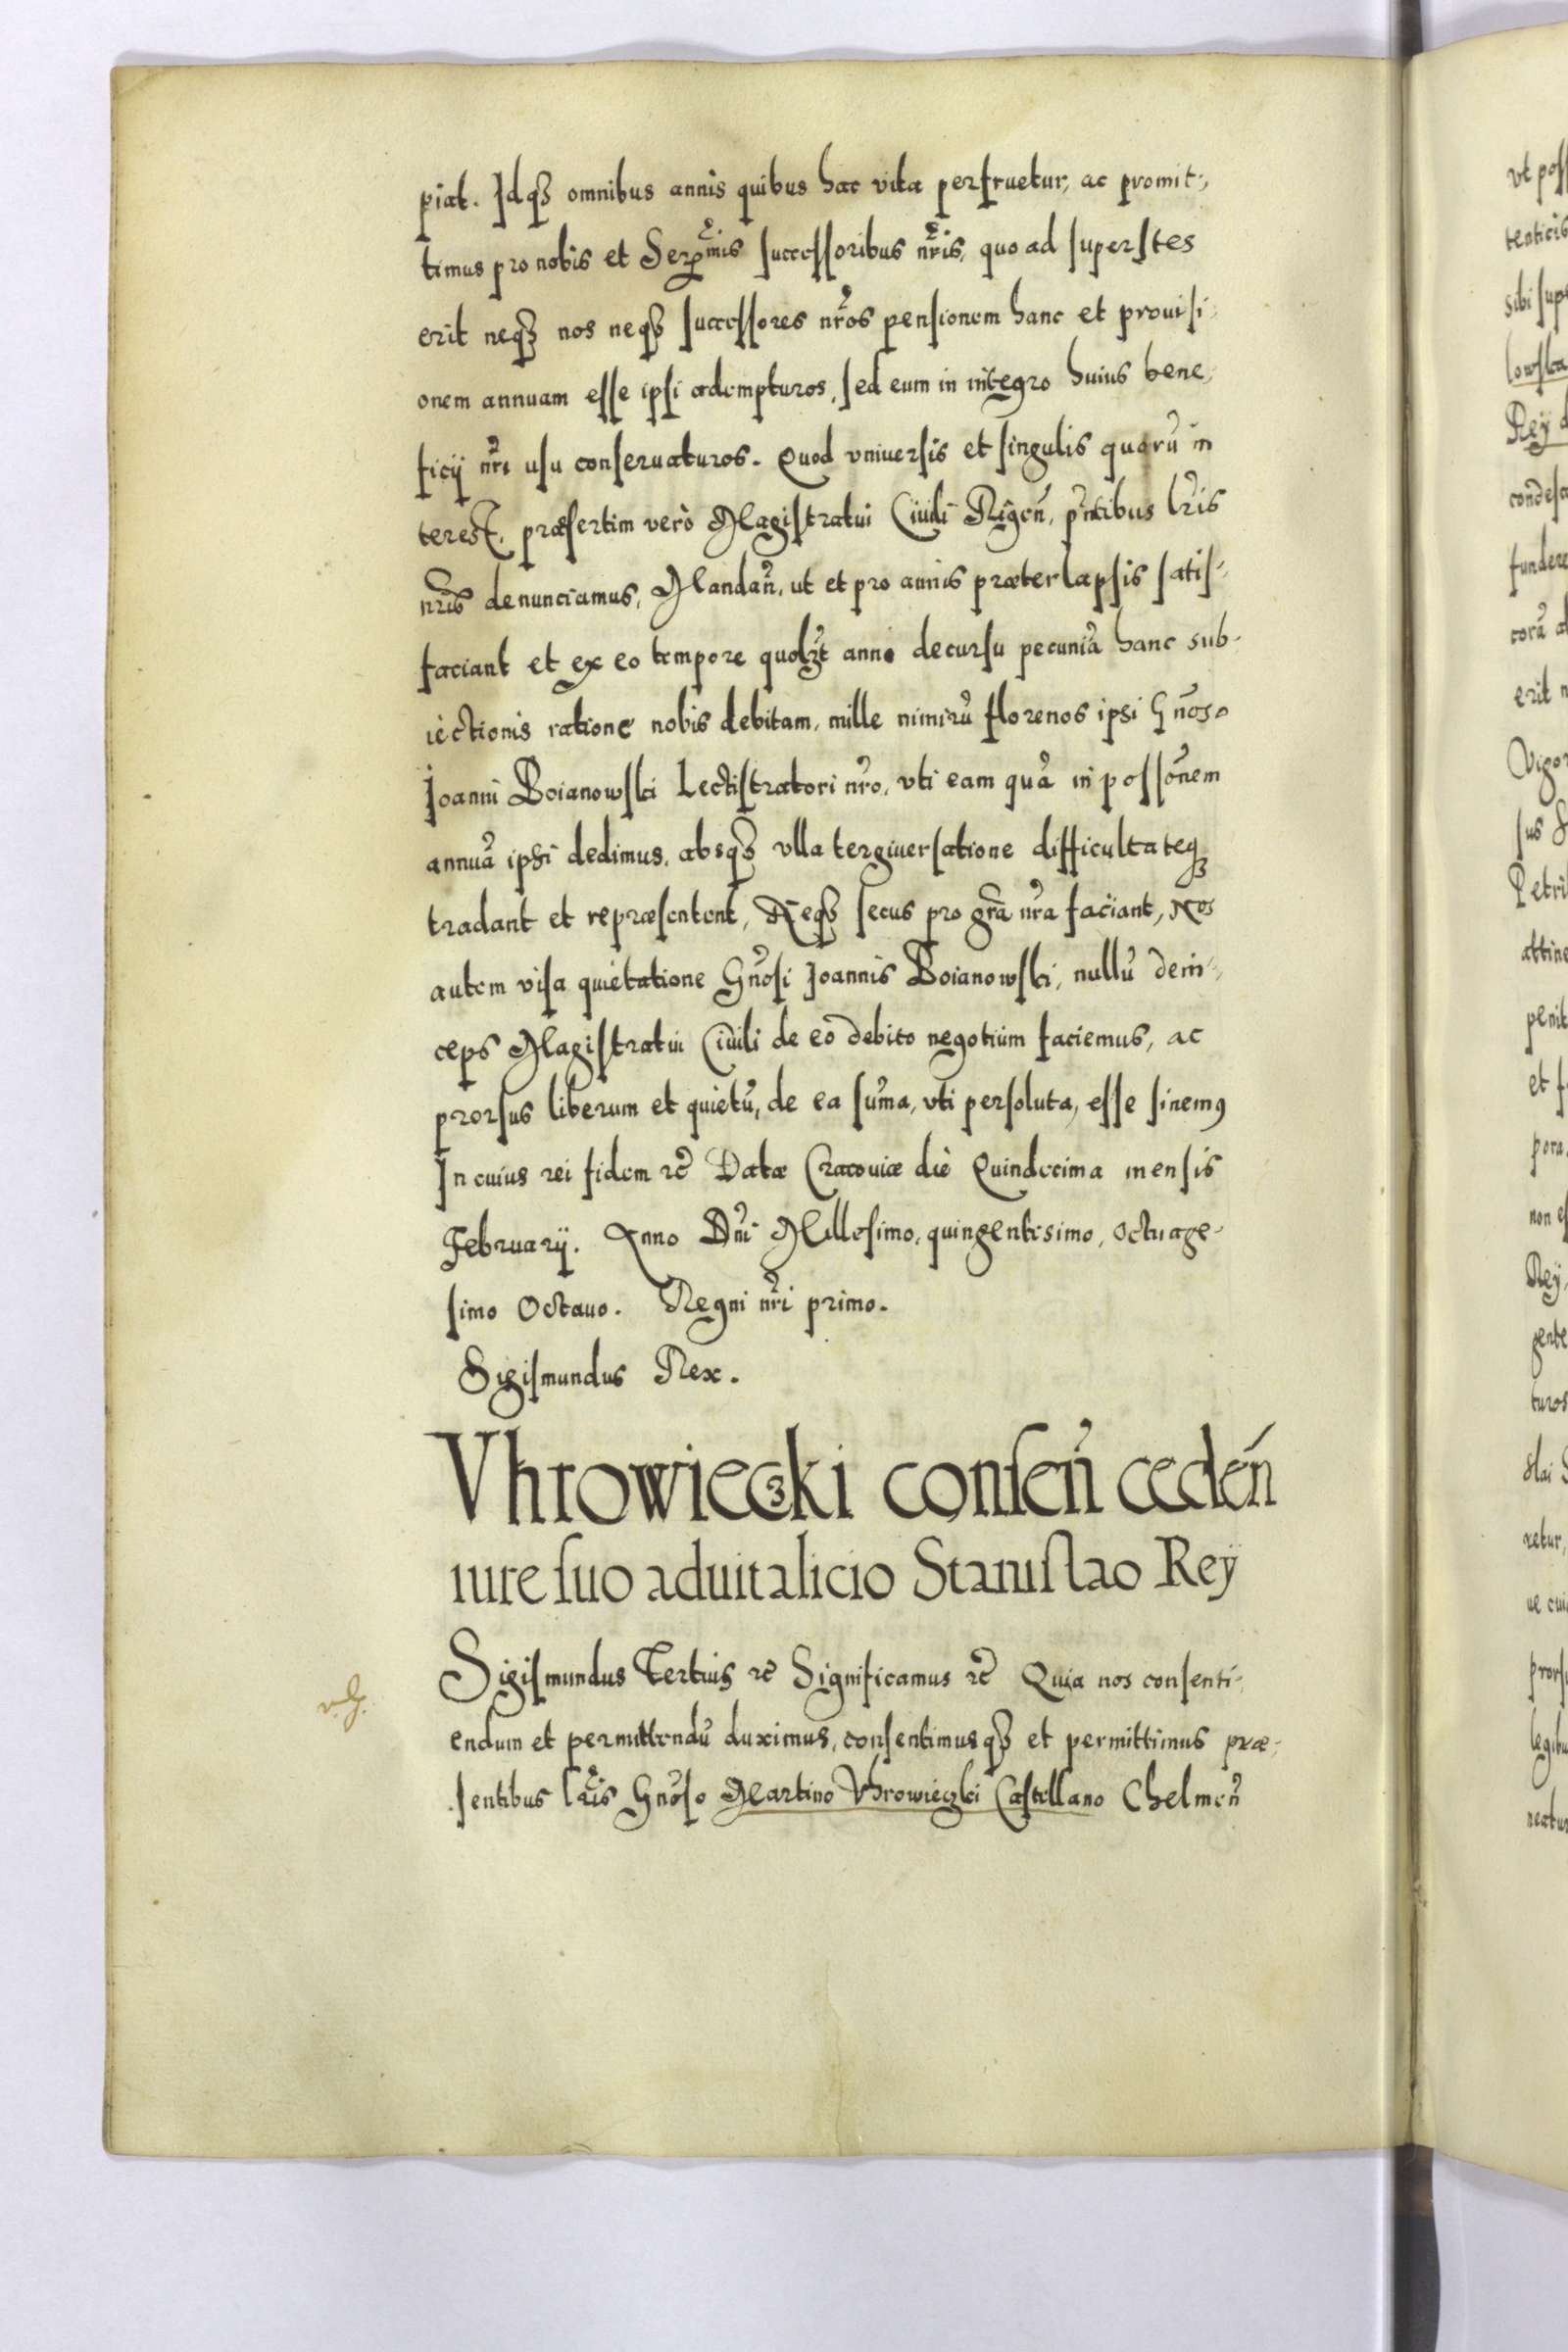 piat. Idqȝ omnibus annis quibus hac vita perfruetur, ac promit-
timus pro nobis et Serᵐⁱˢ successoribus nr̃is, quo ad superstes
erit neqȝ nos neqȝ successores nr̃os pensionem hanc et prouisi
onem annuam esse ipsi adempturos, sed eum in integro huius bene,
ficij nr̃i usu conseruaturos. Quod vniuersis et singulis quorũ in
terest, præsertim verò Magistratui Ciuili Rigeñ, pñtibus lr̃is
nr̃is denunciamus, Mandañ, ut et pro annis præterlapsis satis-
faciant et ex eo tempore quolȝt anni decursu pecuniã hanc sub-
iectionis ratione nobis debitam, mille nimirũ florenos ipsi Gñoso
Ioanni Boianowski Lectistratori nr̃o, vti eam quã in possõnem
annuã ipsi dedimus, absqȝ vlla tergiuersatione difficultateqȝ
tradant et repræsentent, Neqȝ secus pro gr̃a nr̃a faciant, Nos
autem visa quietatione Gñosi Ioannis Boianowski, nullũ dein-
ceps Magistratui Ciuili de eo debito negotium faciemus, ac
prorsus liberum et quietũ, de ea sum̃a, vti persoluta, esse sinemꝰ
In cuius rei fidem rc̃ Datæ Cracouiæ die Quindecima mensis
February. Anno Dñi Millesimo, quingentesimo, Octuage-
simo Octauo. Regni nr̃i primo.
Sigismundus Rex.
Vhrowieczki conseñ cedeñ
iure suo aduitalicio Stanislao Reÿ
Sigismundus Tertius rc̃ Significamus rc̃ Quia nos consenti-
endum et permittendũ duximus, consentimusqȝ et permittimus præ-
sentibus lr̃is Gñoso Martino Vhrowieczki Castellano Chelmeñ